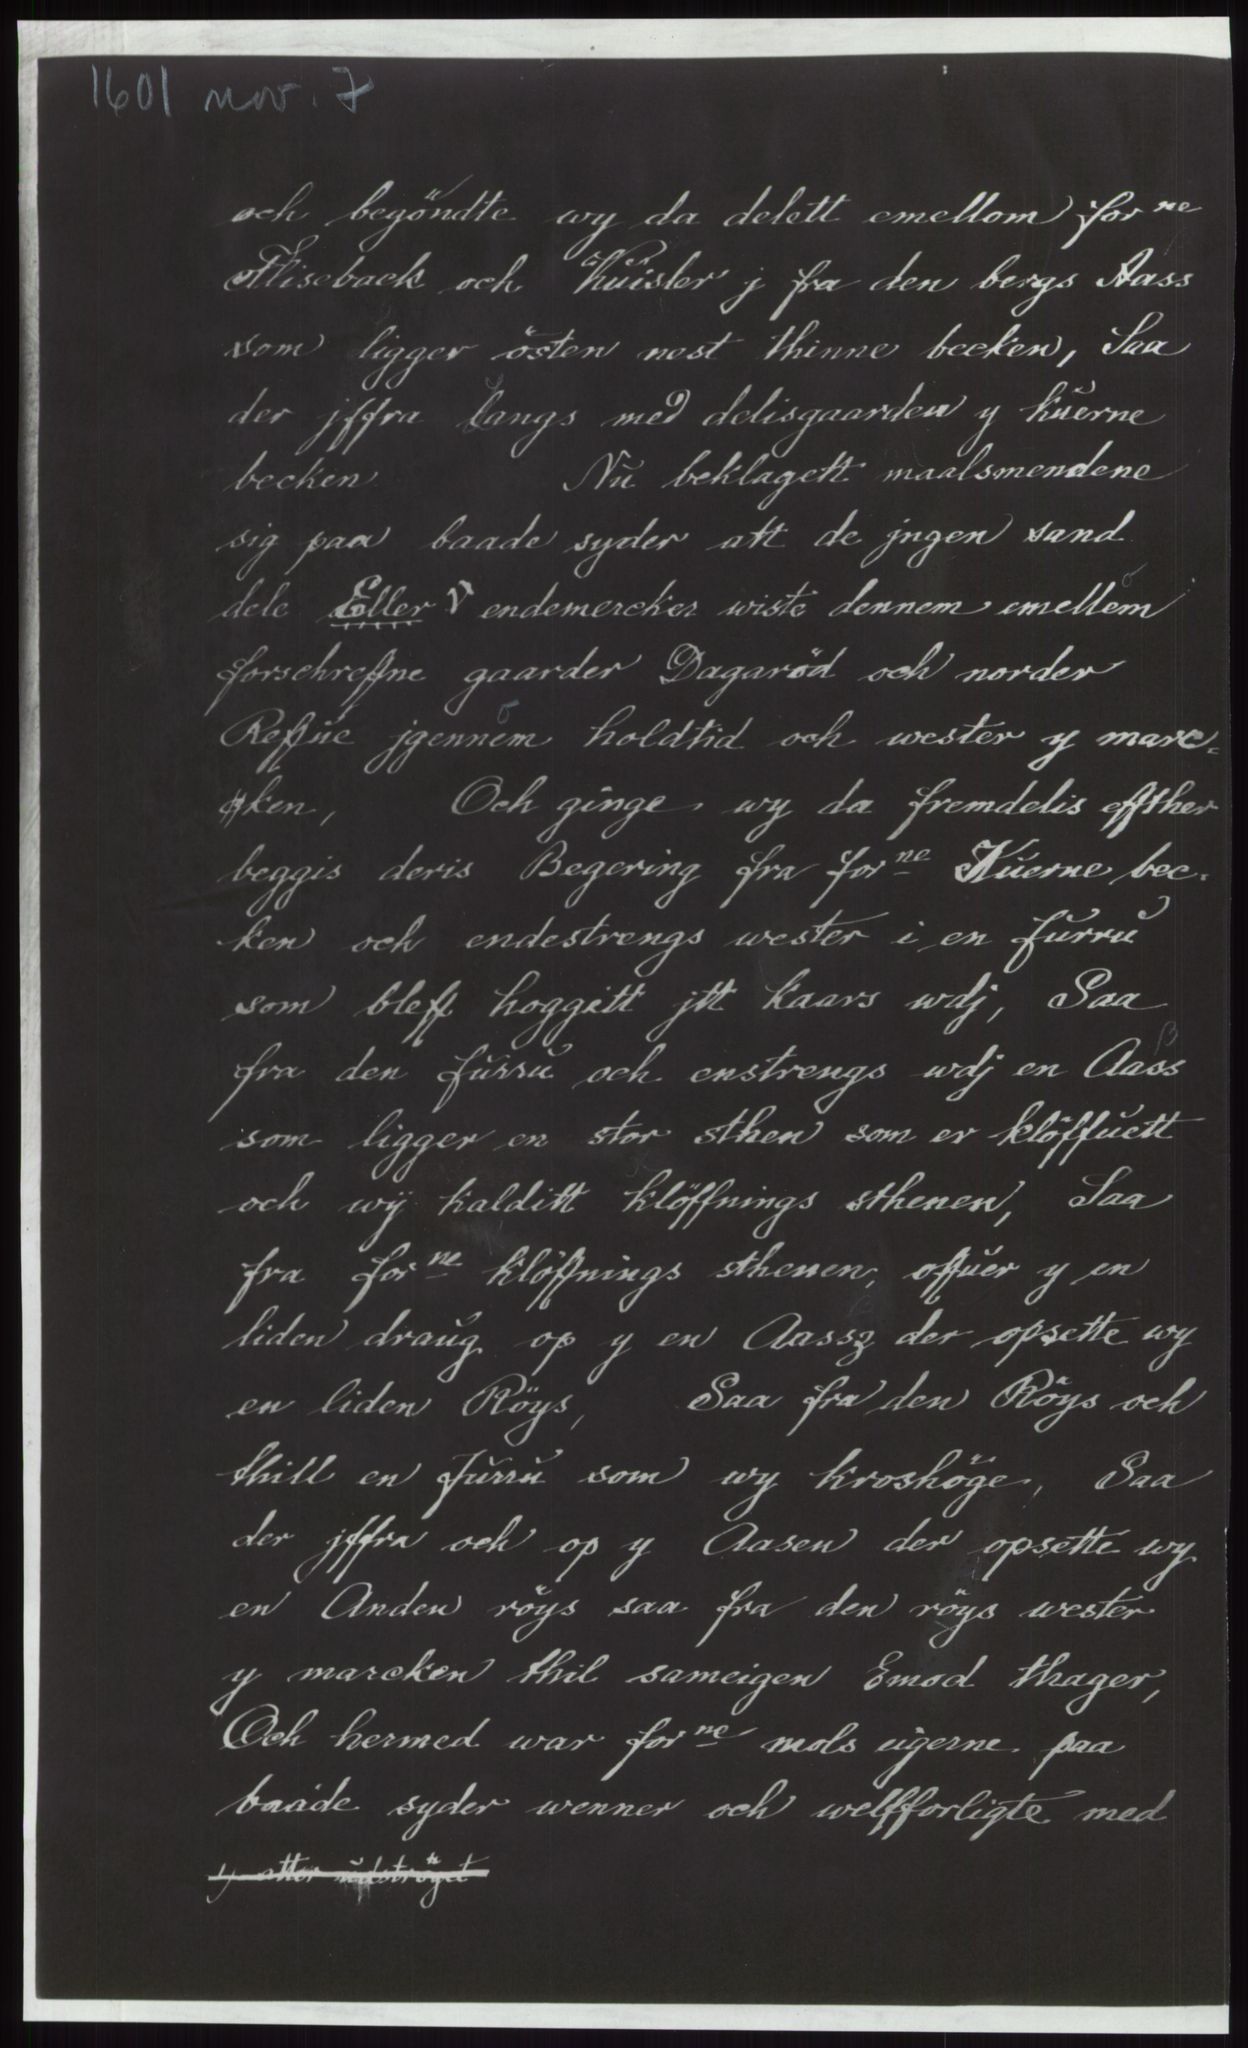 1601 nov. 7
och begöndte wy da delett emellom for ne
Fliseback och Kuisler j fra den bergs Aass
som ligger östen nest thinne becken, Saa
der jffra langs med delisgaarden y kuerne
becken Nu beklagett maalsmendene
sig paa baade syder att de jngen sand
dele Eller endemercker wiste dennem emellom
forschreffne gaarder Dagaröd och norder
Reffue jgennem holdtid och wester y marc-
ken, Och ginge wy da fremdelis effther
beggis deris Begering fra for ne Kuerne bec-
ken och endestrengs wester i en furru
som bleff hoggitt jtt kaars wdj, Saa
fra den furru och enstrengs wdj en Aass
som ligger en stor sthen som er klöffuett
och wÿ kalditt klöffnings sthenen, Saa
fra for ne klöffnings sthenen, offuer y en
liden draug op y en Aassz der opsette wy
en liden Röys, Saa fra den Röys och
thill en furru som wy kroshöge, Saa
der jffra och op y Aasen der opsette wy
en Anden röys saa fra den röys wester
y marcken thil sameigen Emod thager,
Och hermed war for ne mols eigerne paa
baade syder wenner och welfforligte med